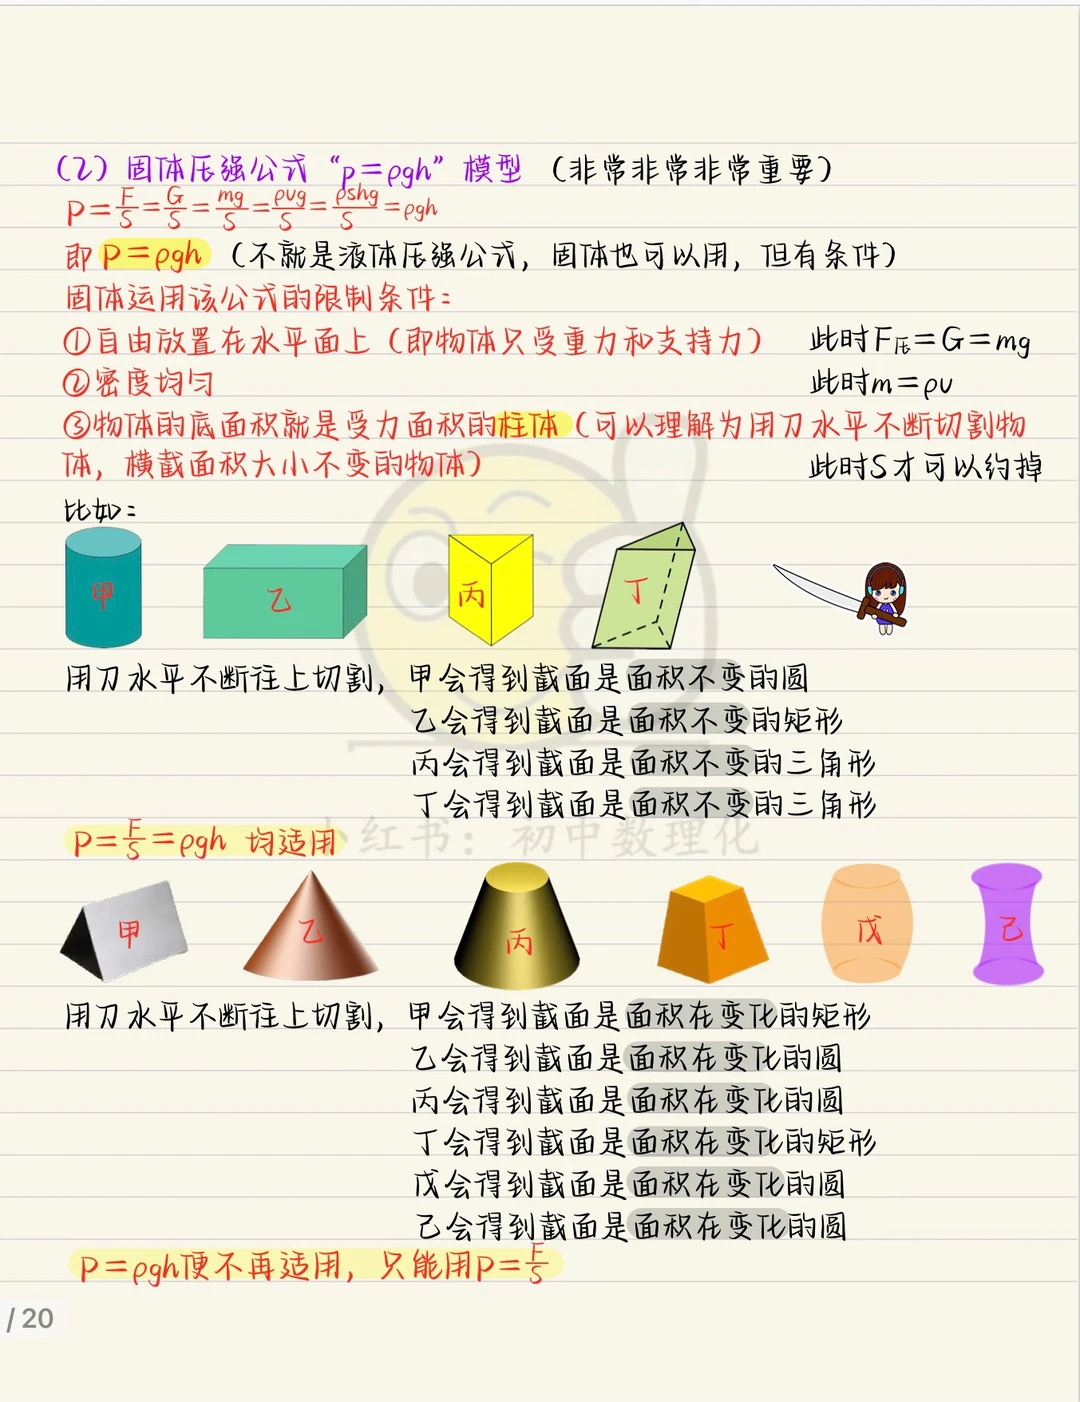 （2）固体压强公式“p=ρgh”模型（非常非常非常重要）
P=F/S=G/S=mg/S=ρvg/S=ρshg/S=ρgh
即 P=ρgh（不就是液体压强公式，固体也可以用，但有条件）
固体运用该公式的限制条件：
①自由放置在水平面上（即物体只受重力和支持力） 此时F压=G=mg
②密度均匀 此时m=ρv
③物体的底面积就是受力面积的柱体（可以理解为用刀水平不断切割物
体，横截面积大小不变的物体） 此时S才可以约掉
比如：
甲 乙 丙 丁
用刀水平不断往上切割，甲会得到截面是面积不变的圆
乙会得到截面是面积不变的矩形
丙会得到截面是面积不变的三角形
丁会得到截面是面积不变的三角形
P=F/S=ρgh 均适用
小红书：初中数理化
甲 乙 丙 丁 戊 己
用刀水平不断往上切割，甲会得到截面是面积在变化的矩形
乙会得到截面是面积在变化的圆
丙会得到截面是面积在变化的圆
丁会得到截面是面积在变化的矩形
戊会得到截面是面积在变化的圆
己会得到截面是面积在变化的圆
P=ρgh便不再适用，只能用P=F/S
/ 20